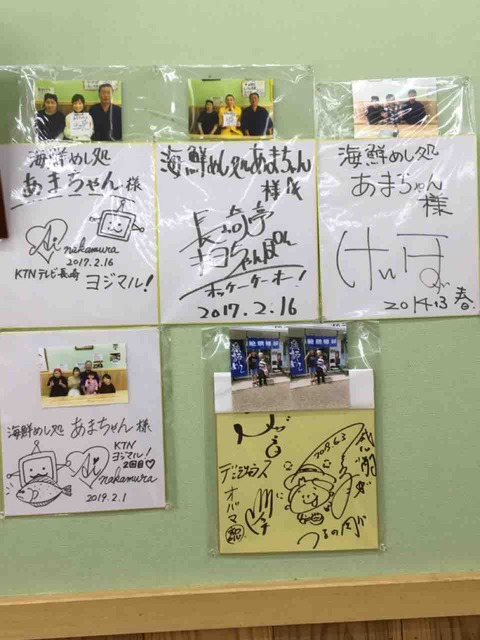 海鮮めし処
あまちゃん 様
Ai nakamura
2017.2.16
KTNテレビ長崎
ヨジマル!
海鮮めし処あまちゃん
様
長崎亭
キヨちゃんぽん
ホッケーケーオー!
2017.2.16
海鮮めし処
あまちゃん
様
春
海鮮めし処 あまちゃん 様
KTN
ヨジマル!
2回目♡
Ai nakamura
2019.2.1
デンジャラス
オバマ
感謝
つるの